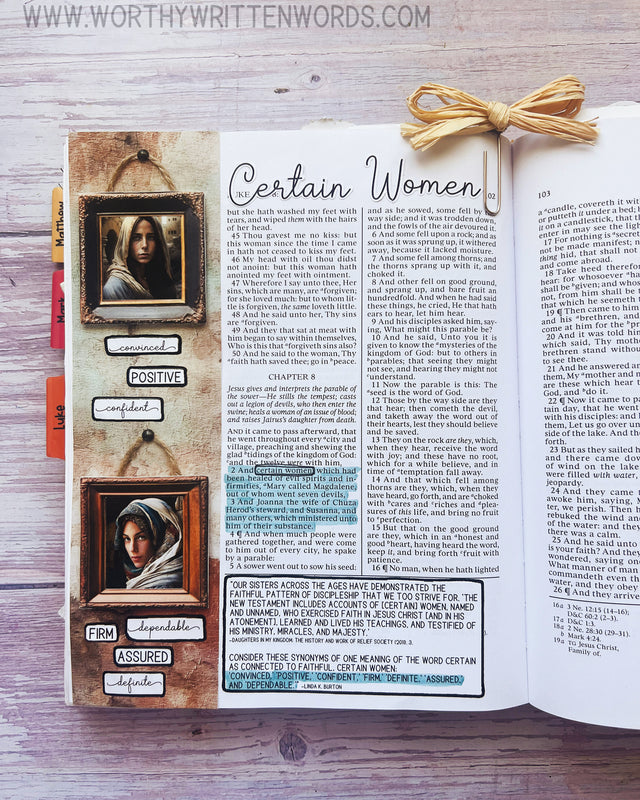 WWW.WORTHYWRITTENWORDS.COM
Matthew
Mark
Luke
Certain Women
convinced
POSITIVE
confident
FIRM
dependable
ASSURED
definite
but she hath washed my feet with
tears, and wiped them with the hairs
of her head.
45 Thou gavest me no kiss: but
this woman since the time I came
in hath not ceased to kiss my feet.
46 My head with oil thou didst
not anoint: but this woman hath
anointed my feet with ointment.
47 Wherefore I say unto thee, Her
sins, which are many, are ᵃforgiven;
for she loved much: but to whom lit-
tle is forgiven, the same loveth little.
48 And he said unto her, Thy sins
are ᵃforgiven.
49 And they that sat at meat with
him began to say within themselves,
Who is this that ᵃforgiveth sins also?
50 And he said to the woman, Thy
ᵃfaith hath saved thee; go in ᵇpeace.
CHAPTER 8
Jesus gives and interprets the parable of
the sower—He stills the tempest; casts
out a legion of devils, who then enter the
swine; heals a woman of an issue of blood;
and raises Jairus's daughter from death.
And it came to pass afterward, that
he went throughout every ᵃcity and
village, preaching and shewing the
glad ᵇtidings of the kingdom of God:
and the twelve were with him,
2 And certain women, which had
been healed of evil spirits and in-
firmities, ᵃMary called Magdalene,
out of whom went seven devils,
3 And Joanna the wife of Chuza
Herod's steward, and Susanna, and
many others, which ministered unto
him of their substance.
4 ¶ And when much people were
gathered together, and were come
to him out of every city, he spake
by a parable:
5 A sower went out to sow his seed:
and as he sowed, some fell by the
way side; and it was trodden down,
and the fowls of the air devoured it.
6 And some fell upon a rock; and as
soon as it was sprung up, it withered
away, because it lacked moisture.
7 And some fell among thorns; and
the thorns sprang up with it, and
choked it.
8 And other fell on good ground,
and sprang up, and bare fruit an
hundredfold. And when he had said
these things, he cried, He that hath
ears to hear, let him hear.
9 And his disciples asked him, say-
ing, What might this parable be?
10 And he said, Unto you it is
given to know the ᵃmysteries of the
kingdom of God: but to others in
ᵇparables; that seeing they might
not see, and hearing they might not
ᶜunderstand.
11 Now the parable is this: The
ᵃseed is the word of God.
12 Those by the way side are they
that hear; then cometh the devil,
and taketh away the word out of
their hearts, lest they should believe
and be saved.
13 They on the rock are they, which,
when they hear, receive the word
with joy; and these have no root,
which for a while believe, and in
time of ᵃtemptation fall away.
14 And that which fell among
thorns are they, which, when they
have heard, go forth, and are ᵃchoked
with ᵇcares and ᶜriches and ᵈplea-
sures of this life, and bring no fruit
to ᵉperfection.
15 But that on the good ground
are they, which in an ᵃhonest and
good ᵇheart, having heard the word,
keep it, and bring forth ᶜfruit with
patience.
16 ¶ No man, when he hath lighted
"OUR SISTERS ACROSS THE AGES HAVE DEMONSTRATED THE
FAITHFUL PATTERN OF DISCIPLESHIP THAT WE TOO STRIVE FOR. 'THE
NEW TESTAMENT INCLUDES ACCOUNTS OF [CERTAIN] WOMEN, NAMED
AND UNNAMED, WHO EXERCISED FAITH IN JESUS CHRIST [AND IN HIS
ATONEMENT], LEARNED AND LIVED HIS TEACHINGS, AND TESTIFIED OF
HIS MINISTRY, MIRACLES, AND MAJESTY.'
-DAUGHTERS IN MY KINGDOM: THE HISTORY AND WORK OF RELIEF SOCIETY (2011), 3.
CONSIDER THESE SYNONYMS OF ONE MEANING OF THE WORD CERTAIN
AS CONNECTED TO FAITHFUL, CERTAIN WOMEN:
'CONVINCED,' 'POSITIVE,' 'CONFIDENT,' 'FIRM,' 'DEFINITE,' 'ASSURED,'
AND 'DEPENDABLE.'" -LINDA K. BURTON
103
a ᵃcandle, covereth it with
or putteth it under a bed; b
it on a candlestick, that the
enter in may see the light
17 For nothing is ᵃsecret
not be made manifest; n
thing hid, that shall not
and come abroad.
18 Take heed therefor
hear: for whosoever ᵃha
shall be ᵇgiven; and whos
not, from him shall be t
which he seemeth
19 ¶ Then came to him
and his ᵇbrethren, and
come at him for the ᵇpr
20 And it was told him
which said, Thy mothe
brethren stand without
to see thee.
21 And he answered an
them, My ᵃmother and m
are these which hear t
God, and ᵇdo it.
22 ¶ Now it came to pa
tain day, that he went
with his disciples: and h
them, Let us go over un
side of the lake. And th
forth.
23 But as they sailed h
and there came down
of wind on the lake
were filled with water,
jeopardy.
24 And they came t
awoke him, saying, M
ter, we perish. Then h
rebuked the wind and
of the water: and they
there was a calm.
25 And he said unto
is your faith? And they
wondered, saying one
What manner of man
commandeth even th
water, and they obey
26 ¶ And they arrive
16a 3 Ne. 12:15 (14–16);
D&C 60:2 (2–3).
17a D&C 1:3.
18a 2 Ne. 28:30 (29–31).
b Mark 4:24.
19a TG Jesus Christ,
Family of.